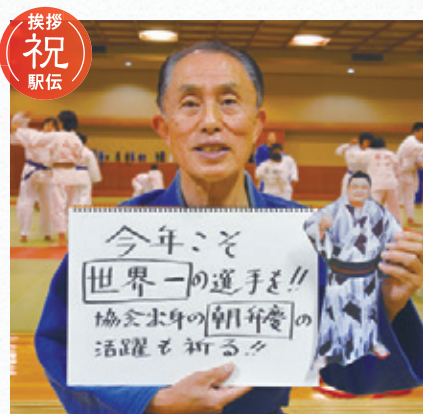 挨拶
祝
駅伝
今年こそ
世界一の選手を!!
協会出身の朝弁慶の
活躍も祈る!!